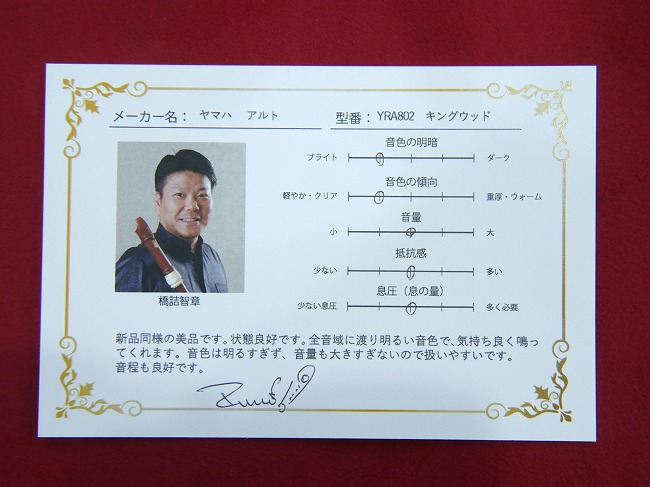 メーカー名： ヤマハ アルト 型番： YRA802 キングウッド
音色の明暗
ブライト ダーク
音色の傾向
軽やか・クリア 重厚・ウォーム
音量
小 大
抵抗感
少ない 多い
息圧（息の量）
少ない息圧 多く必要
橋詰智章
新品同様の美品です。状態良好です。全音域に渡り明るい音色で、気持ち良く鳴っ
てくれます。音色は明るすぎず、音量も大きすぎないので扱いやすいです。
音程も良好です。